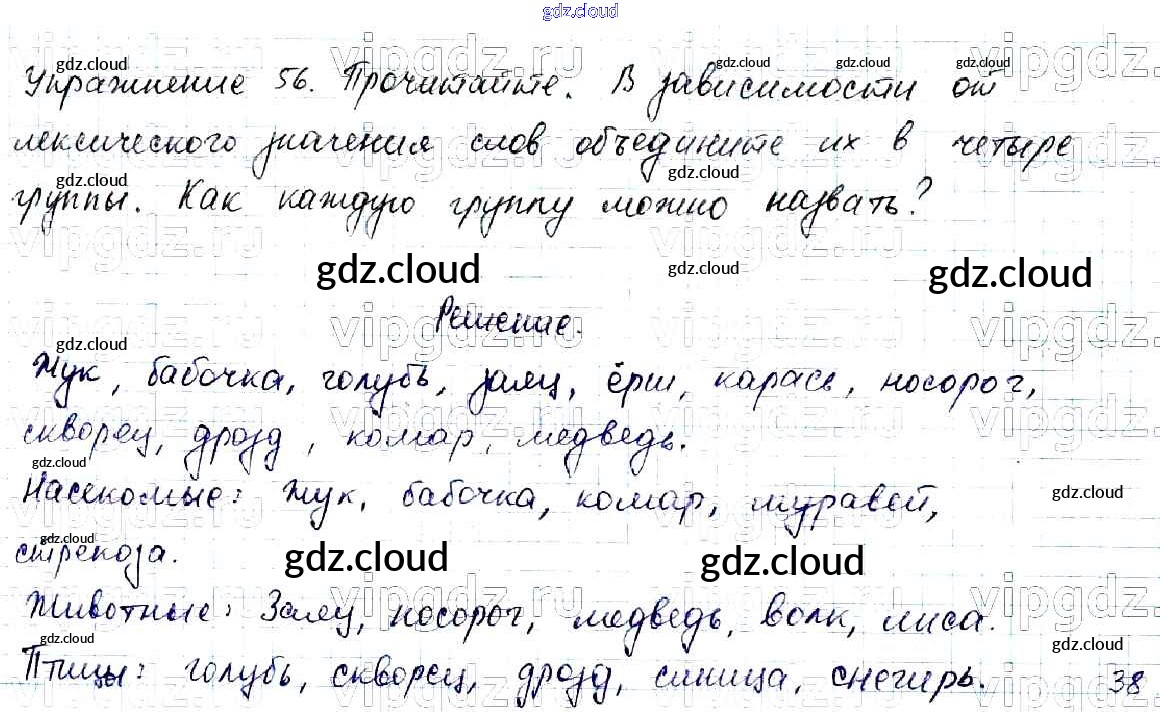 gdz.cloud
Упражнение 56. Прочитайте. В зависимости от
лексического значения слов объедините их в четыре
группы. Как каждую группу можно назвать?
Решение.
Жук, бабочка, голубь, заяц, ёрш, карась, носорог,
скворец, дрозд, комар, медведь.
Насекомые: Жук, бабочка, комар, муравей,
стрекоза.
Животные: Заяц, носорог, медведь, волк, лиса.
Птицы: голубь, скворец, дрозд, синица, снегирь.
38